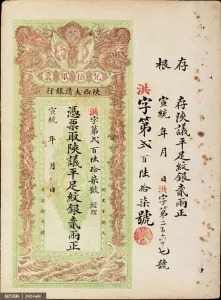 兌換銀票
陝西大清銀行
洪字第弍百陸拾柒號 經理
憑票取陝議平足紋銀貳兩正
宣統 年 月 日
洪字第弍百陸拾柒號
存根
存陝議平足紋銀貳兩正
宣統 年 月 日洪字第二百六十七號